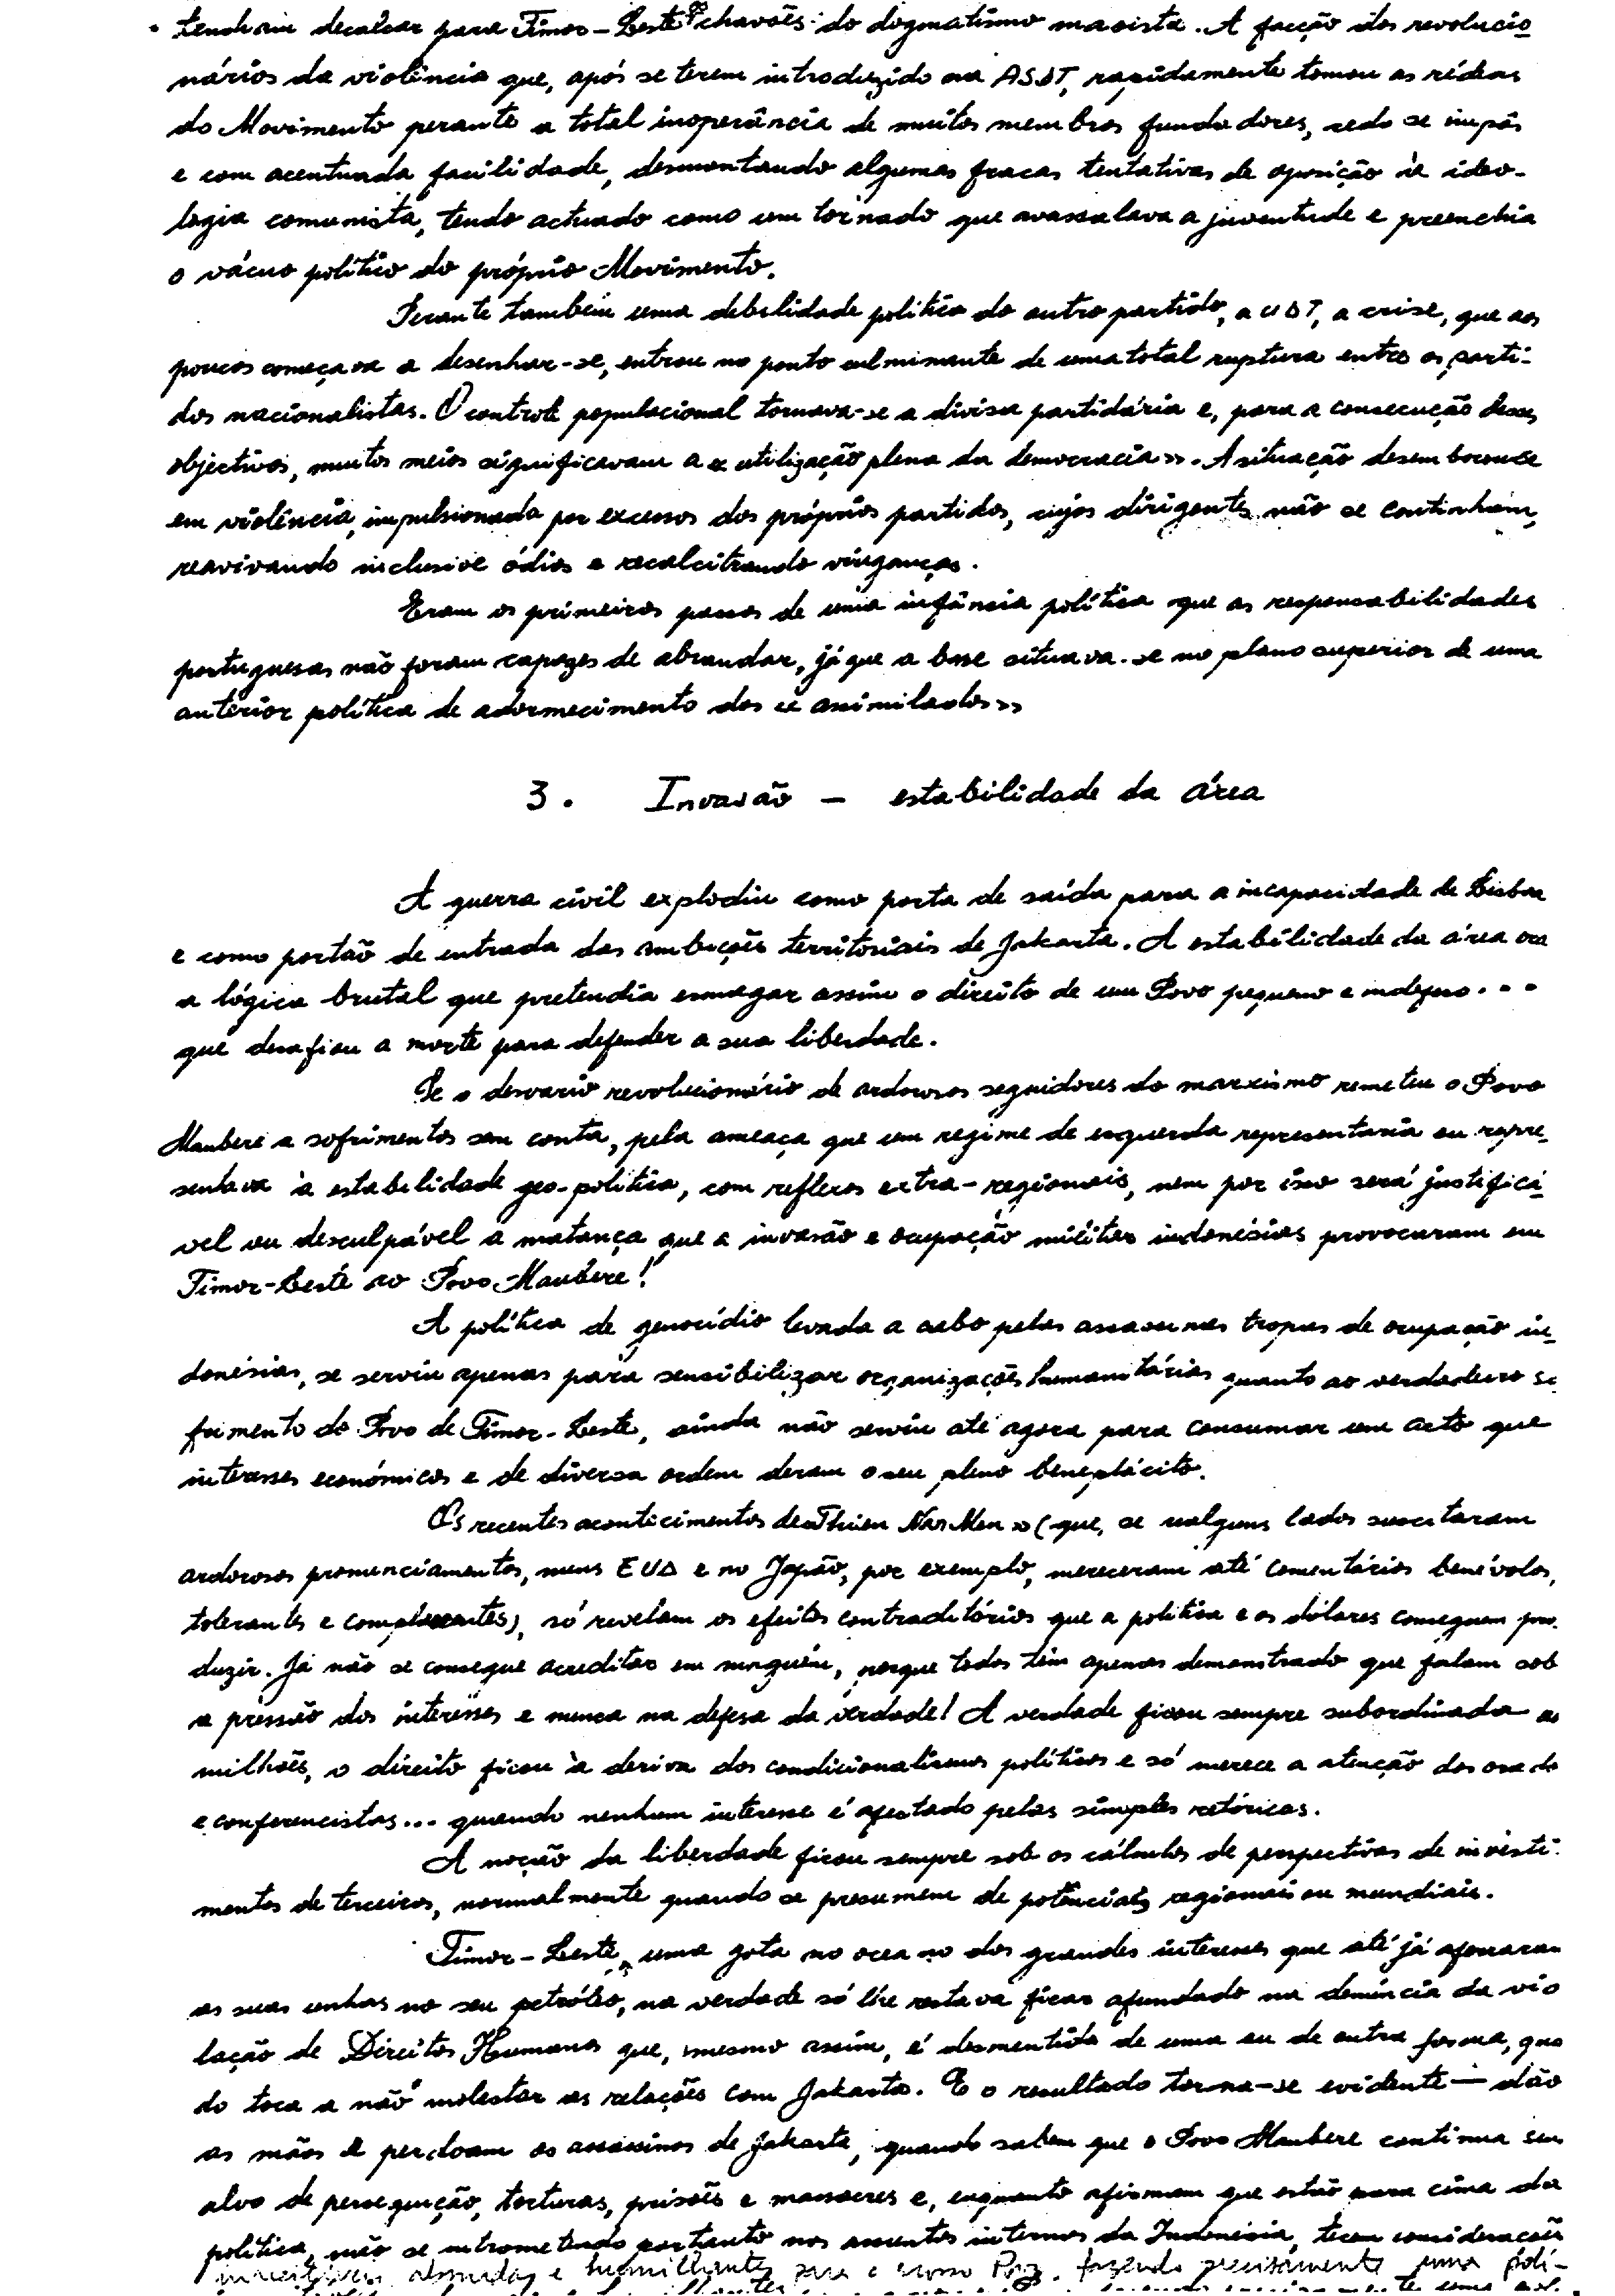 tenham decalcar para Timor-Leste chavões do dogmatismo maoista. A facção dos revolucio
nários da violência que, após se terem introduzido na ASDT, rapidamente tomou as rédeas
do Movimento perante a total inoperância de muitos membros fundadores, cedo se impôs
e com acentuada facilidade, desmontando algumas fracas tentativas de oposição à ideo-
logia comunista, tendo actuado como um tornado que avassalava a juventude e preenchia
o vácuo político do próprio Movimento.
Perante também uma debilidade política do outro partido, a UDT, a crise, que aos
poucos começava a desenhar-se, entrou no ponto culminante de uma total ruptura entre os parti-
dos nacionalistas. O controle populacional tornava-se a divisa partidária e, para a consecução desses
objectivos, muitos meios significavam a «utilização plena da democracia». A situação desembocou-se
em violência, impulsionada por excessos dos próprios partidos, cujos dirigentes não se continham,
reavivando inclusive ódios e recalcitrando vinganças.
Eram os primeiros passos de uma infância política que as responsabilidades
portuguesas não foram capazes de abrandar, já que a base situava-se no plano superior de uma
anterior política de adormecimento dos «assimilados»
3. Invasão - estabilidade da área
A guerra civil explodiu como porta de saída para a incapacidade de Lisboa
e como portão de entrada das ambições territoriais de Jakarta. A estabilidade da área era
a lógica brutal que pretendia esmagar assim o direito de um Povo pequeno e indefeso...
que desafiou a morte para defender a sua liberdade.
Se o desvario revolucionário de ardorosos seguidores do marxismo remeteu o Povo
Maubere a sofrimentos sem conta, pela ameaça que um regime de esquerda representaria ou repre-
sentava à estabilidade geo-política, com reflexos extra-regionais, nem por isso será justificá-
vel ou desculpável a matança que a invasão e ocupação militar indonésias provocaram em
Timor-Leste ao Povo Maubere!
A política de genocídio levada a cabo pelas assassinas tropas de ocupação in-
donésias, se serviu apenas para sensibilizar organizações humanitárias quanto ao verdadeiro so
frimento do Povo de Timor-Leste, ainda não serviu até agora para consumar um acto que
interesses económicos e de diversa ordem deram o seu pleno beneplácito.
Os recentes acontecimentos de «Thien Nan Men» (que, se nalguns lados suscitaram
ardorosos pronunciamentos, nuns EUA e no Japão, por exemplo, mereceram até comentários benévolos,
tolerantes e complacentes), só revelam os efeitos contraditórios que a política e os dólares conseguem pro-
duzir. Já não se consegue acreditar em ninguém, porque todos têm apenas demonstrado que falam sob
a pressão dos interesses e nunca na defesa da verdade! A verdade ficou sempre subordinada aos
milhões, o direito ficou à deriva dos condicionalismos políticos e só merece a atenção dos
e conferencistas... quando nenhum interesse é afectado pelas simples retóricas.
A noção da liberdade ficou sempre sob os cálculos de perspectivas de investi-
mentos de terceiros, normalmente quando se presumem de potências regionais ou mundiais.
Timor-Leste, uma gota no oceano dos grandes interesses que até já aferraram
as suas unhas no seu petróleo, na verdade só lhe restava ficar afundado na denúncia da vio
lação de Direitos Humanos que, mesmo assim, é desmentida de uma ou de outra forma, quan
do toca a não molestar as relações com Jakarta. E o resultado torna-se evidente - dão
as mãos e perdoam os assassinos de Jakarta, quando sabem que o Povo Maubere continua sen
alvo de perseguição, torturas, prisões e massacres e, enquanto afirmam que estão para cima da
política, não se intrometendo portanto nos assuntos internos da Indonésia, tecem considerações
absurdas e humilhantes para o nosso Povo, fazendo precisamente uma polí-